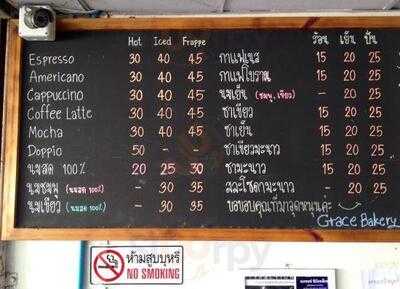 Hot Iced Frappe
Espresso 30 40 45
Americano 30 40 45
Cappuccino 30 40 45
Coffee Latte 30 40 45
Mocha 30 40 45
Doppio 50 - -
นมสด 100% 20 25 30
นมชมพู (นมสด 100%) - 30 35
นมเขียว (นมสด 100%) - 30 35
ร้อน เย็น ปั่น
กาแฟเนส 15 20 25
กาแฟโบราณ 15 20 25
นมเย็น (ชมพู, เขียว) - 20 25
ชาเขียว 15 20 25
ชาเย็น 15 20 25
ชาเขียวมะนาว 15 20 25
ชามะนาว 15 20 25
สละโซดามะนาว - 20 25
ขอบขอบคุณที่มาอุดหนุนค่ะ
Grace Bakery
ห้ามสูบบุหรี่
NO SMOKING